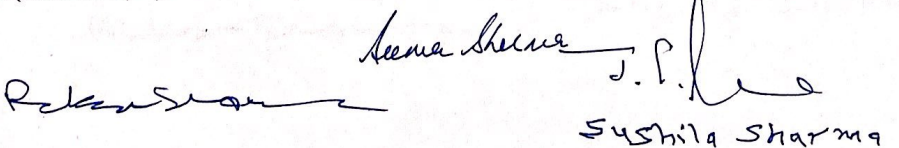 Seema Sharma
J. P.
Rakesh Sharma
Sushila Sharma